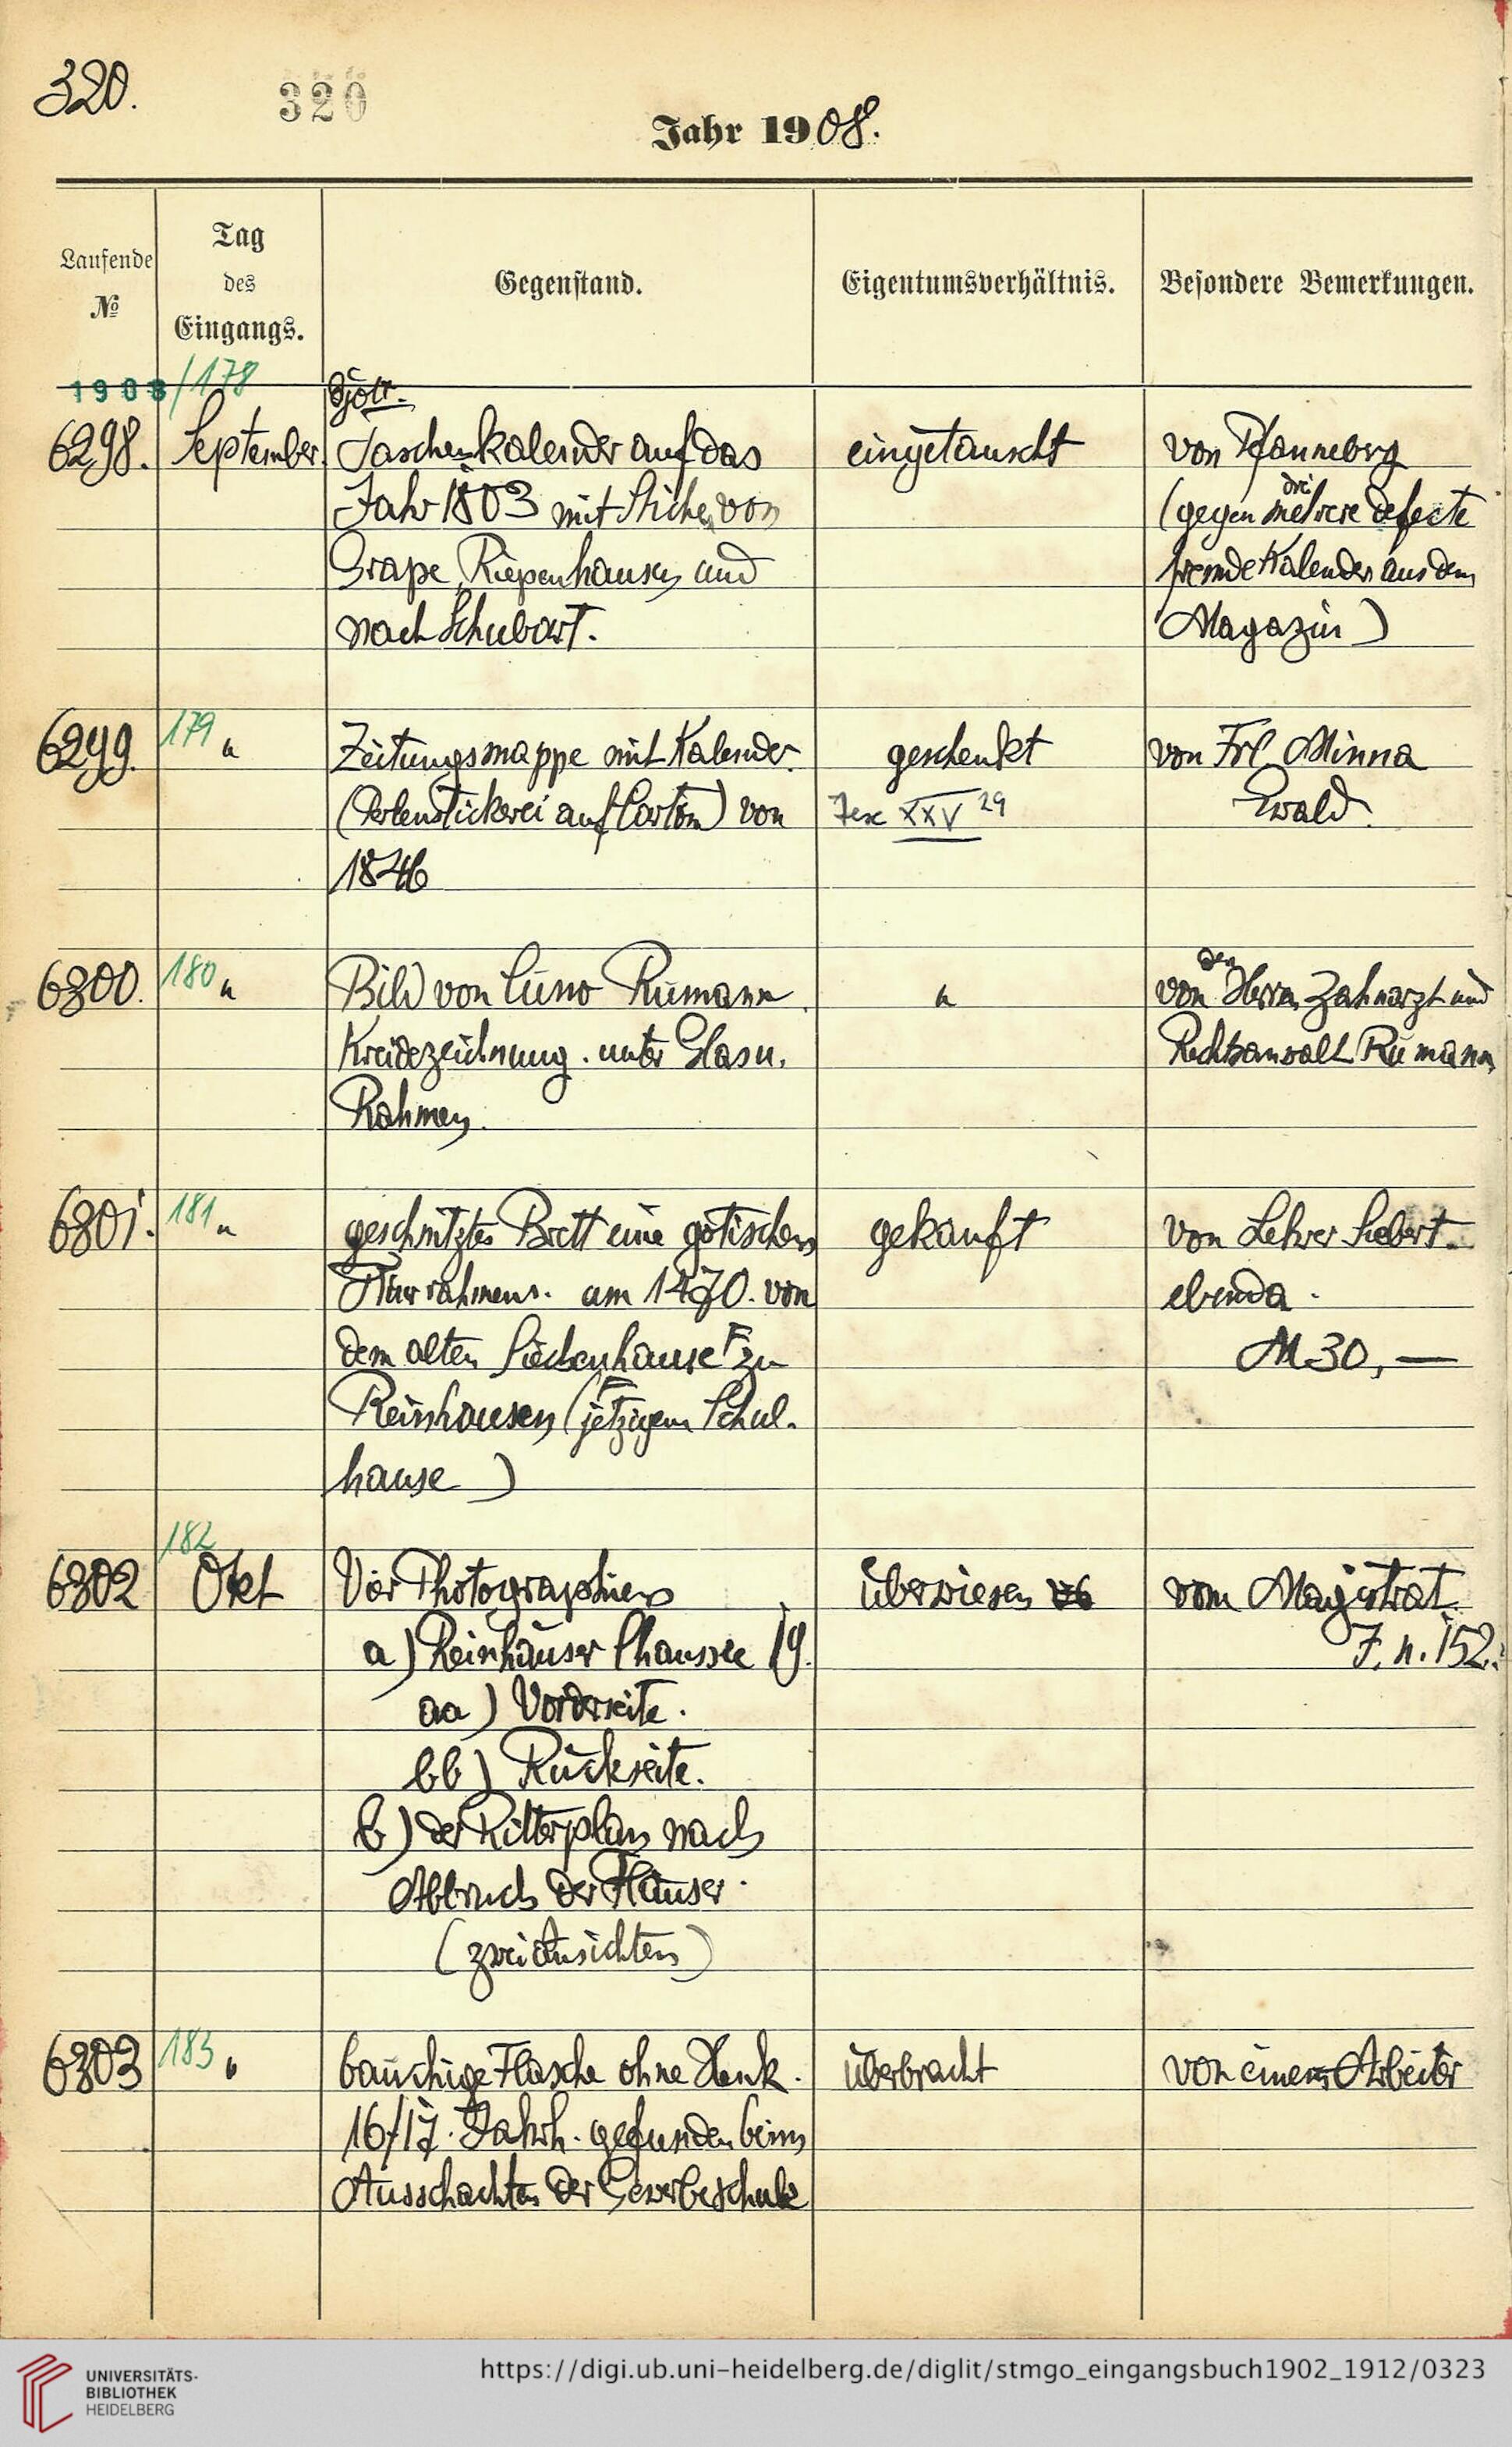 320.
320
Jahr 1908.
Laufende
No
Tag
des
Eingangs.
Gegenstand.
Eigentumsverhältnis.
Besondere Bemerkungen.
1908/178
Gött.
6298. September. Taschenkalender auf das eingetauscht von Pfanneberg
Jahr 1803 mit Stichen von (gegen mehrere defecte
drei
Grape, Riepenhausen und fremde Kalender aus dem
nach Schubart. Magazin)
6299. 179 " Zeitungsmappe mit Kalender. geschenkt von Frl. Minna
(Perlenstickerei auf Carton) von XXV 29 Ewald.
1846
6300. 180 " Bild von Cuno Rümann " von den Herrn Zahnarzt und
Kreidezeichnung. unter Glas u. Rechtsanwalt Rümann
Rahmen.
6301. 181 " geschnitztes Brett eine gotischen gekauft von Lehrer Siebert.
Türrahmens. um 1470. von ebenda.
dem alten Siechenhause zu M 30,—
Reinhausen (jetzigem Schul-
hause)
182
6302 Okt Vier Photographien überwiesen vom Magistrat
a) Reinhäuser Chaussee 19. J. n. 152.
aa) Vorderseite.
bb) Rückseite.
b) der Ritterplan nach
Abbruch der Häuser.
(zwei Ansichten)
6303 183 " bauchige Flasche ohne Henk. überbracht von einem Arbeiter
16/17. Jahrh. gefunden beim
Ausschachten der Gewerbeschule
UNIVERSITÄTS-
BIBLIOTHEK
HEIDELBERG
https://digi.ub.uni-heidelberg.de/diglit/stmgo_eingangsbuch1902_1912/0323